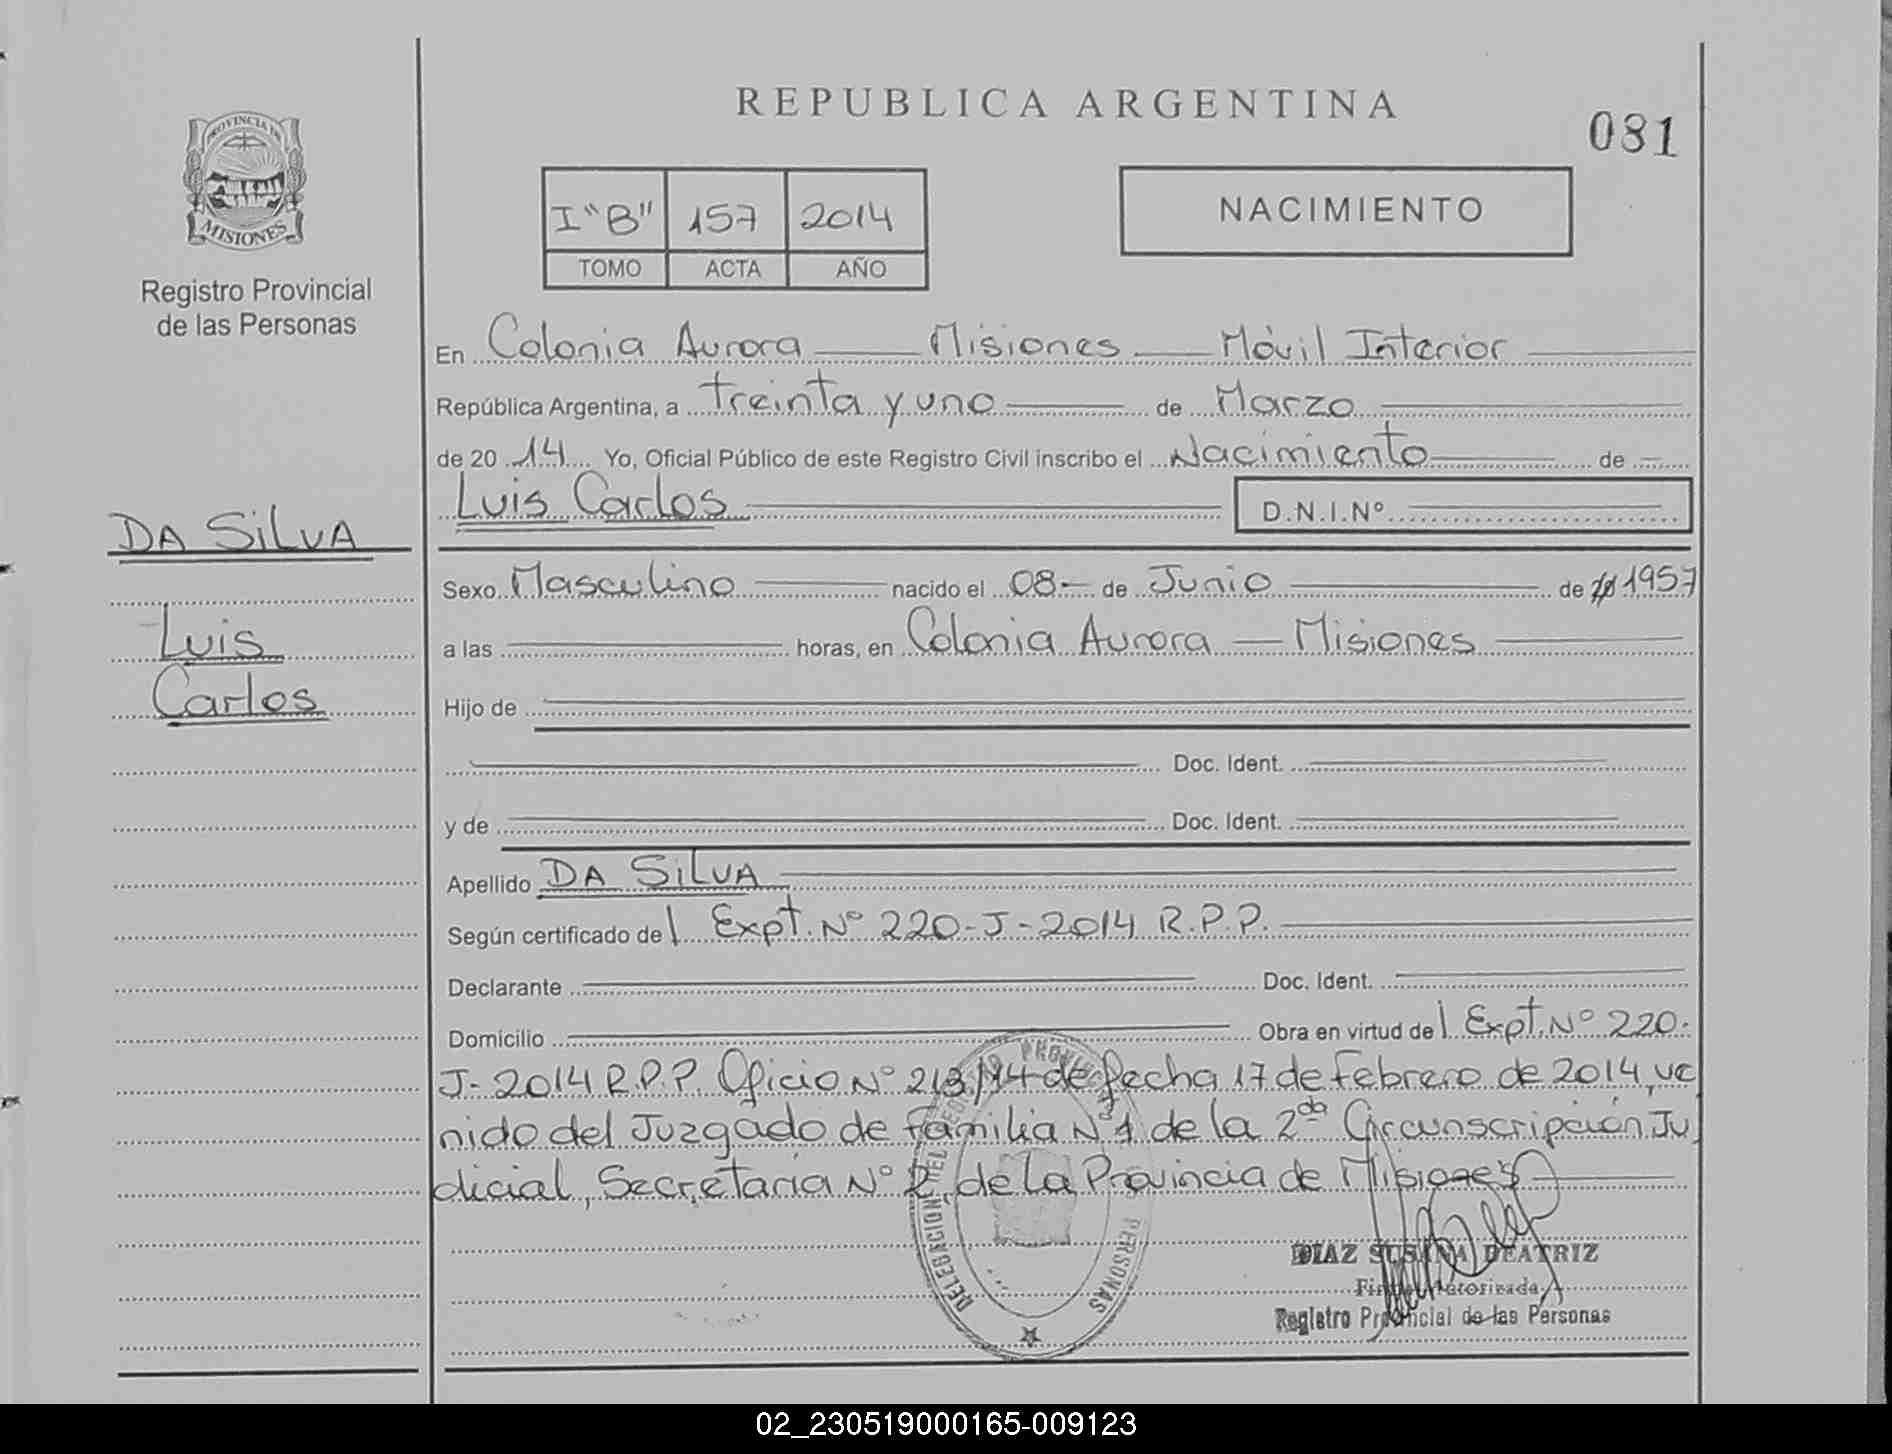 REPUBLICA ARGENTINA
081
PROVINCIA DE
MISIONES
Registro Provincial
de las Personas
I "B" 157 2014
TOMO ACTA AÑO
NACIMIENTO
En Colonia Aurora — Misiones — Móvil Interior
República Argentina, a treinta y uno de Marzo
de 20 14 Yo, Oficial Público de este Registro Civil inscribo el Nacimiento de
Luis Carlos D.N.I.Nº
DA SILVA
Luis
Carlos
Sexo Masculino nacido el 08 - de Junio de 1957
a las horas, en Colonia Aurora — Misiones
Hijo de
Doc. Ident.
y de Doc. Ident.
Apellido DA SILVA
Según certificado de Expt. Nº 220-J-2014 R.P.P.
Declarante Doc. Ident.
Domicilio Obra en virtud de Expt. Nº 220-
J-2014 R.P.P. Oficio Nº 213/14 de fecha 17 de Febrero de 2014, ve
nido del Juzgado de Familia Nº 1 de la 2da Circunscripción Ju
dicial, Secretaría Nº 2, de la Provincia de Misiones
DELEGACIÓN DEL PERSONAS
DIAZ SUSANA BEATRIZ
Firma Autorizada
Registro Provincial de las Personas
02_230519000165-009123